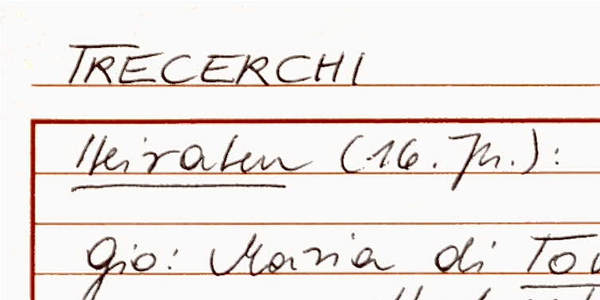 TRECERCHI
Heiraten (16. Jh.):
Gio: Maria di